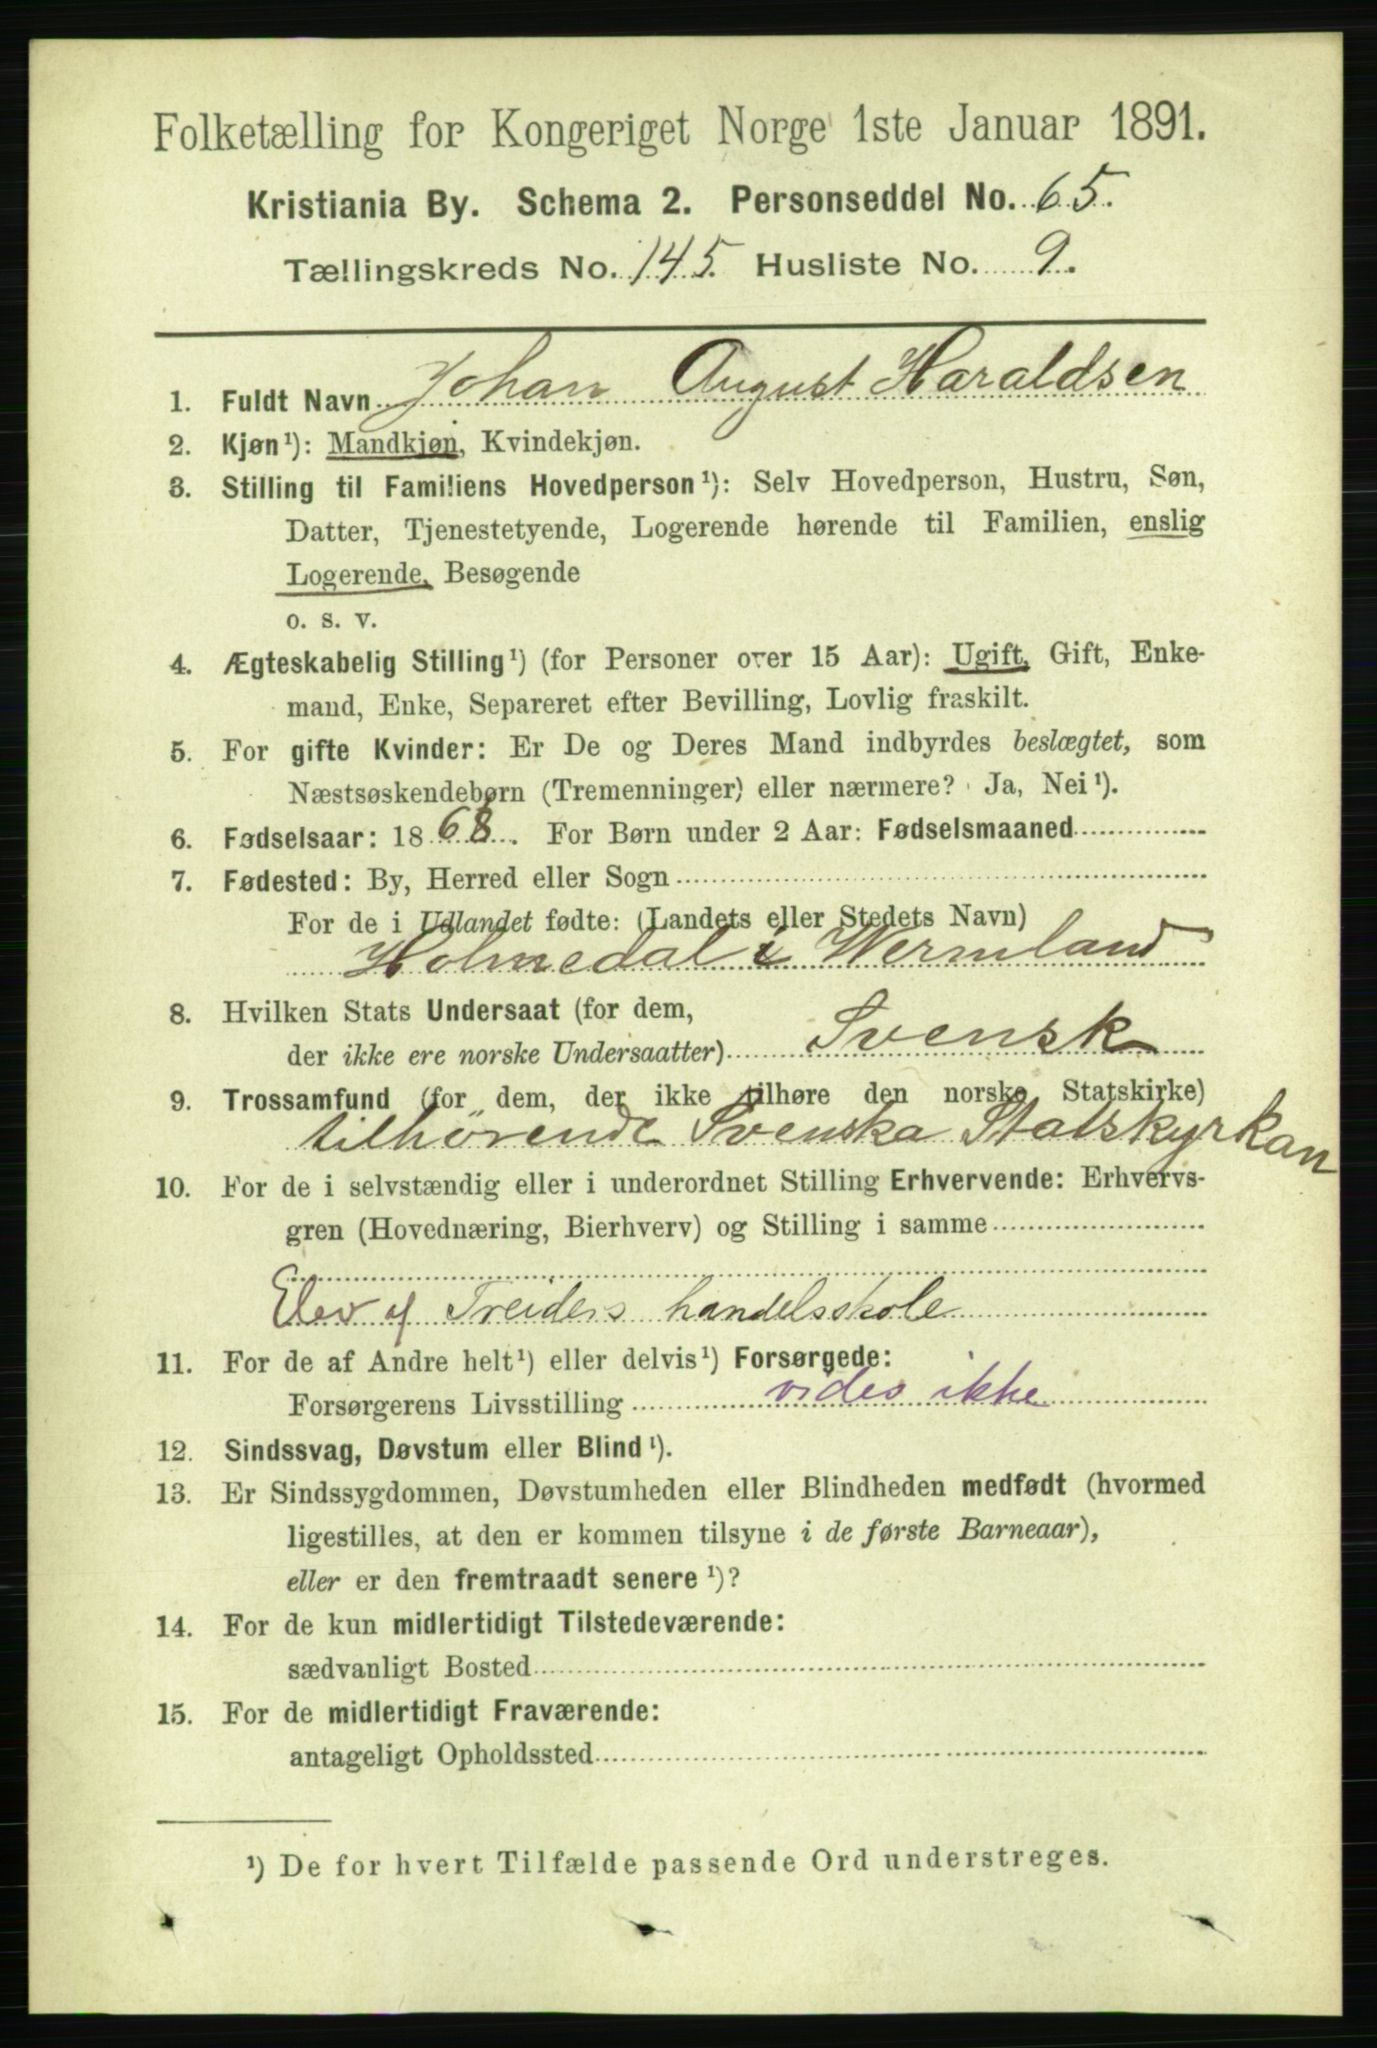 Folketælling for Kongeriget Norge 1ste Januar 1891.
Kristiania By. Schema 2. Personseddel No. 65.
Tællingskreds No. 145. Husliste No. 9.
1. Fuldt Navn Johan August Haraldsen
2. Kjøn¹): Mandkjøn, Kvindekjøn.
3. Stilling til Familiens Hovedperson¹): Selv Hovedperson, Hustru, Søn,
Datter, Tjenestetyende, Logerende hørende til Familien, enslig
Logerende, Besøgende
o. s. v.
4. Ægteskabelig Stilling¹) (for Personer over 15 Aar): Ugift, Gift, Enke-
mand, Enke, Separeret efter Bevilling, Lovlig fraskilt.
5. For gifte Kvinder: Er De og Deres Mand indbyrdes beslægtet, som
Næstsøskendebørn (Tremenninger) eller nærmere? Ja, Nei¹).
6. Fødselsaar: 1868. For Børn under 2 Aar: Fødselsmaaned
7. Fødested: By, Herred eller Sogn
For de i Udlandet fødte: (Landets eller Stedets Navn)
Holmedal i Wermland
8. Hvilken Stats Undersaat (for dem,
der ikke ere norske Undersaatter) Svensk
9. Trossamfund (for dem, der ikke tilhøre den norske Statskirke)
tilhörende Svenska Statskyrkan
10. For de i selvstændig eller i underordnet Stilling Erhvervende: Erhvervs-
gren (Hovednæring, Bierhverv) og Stilling i samme
Elev af Treiders handelsskole
11. For de af Andre helt¹) eller delvis¹) Forsørgede:
Forsørgerens Livsstilling vides ikke
12. Sindssvag, Døvstum eller Blind¹).
13. Er Sindssygdommen, Døvstumheden eller Blindheden medfødt (hvormed
ligestilles, at den er kommen tilsyne i de første Barneaar),
eller er den fremtraadt senere¹)?
14. For de kun midlertidigt Tilstedeværende:
sædvanligt Bosted
15. For de midlertidigt Fraværende:
antageligt Opholdssted
¹) De for hvert Tilfælde passende Ord understreges.